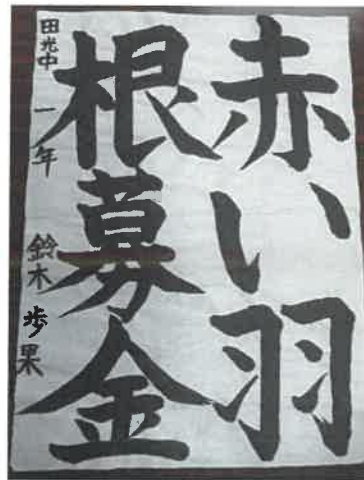 赤い羽
根募金
田光中 一年 鈴木歩果